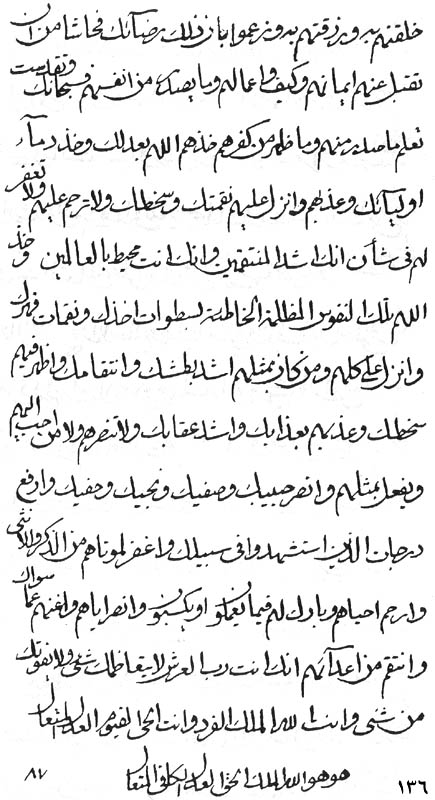 خلقتهم به ورزقتهم به وزعموا بان ذلك رضائك فحاشا من ان
تقبل عنهم ايمانهم وكيف واعمالهم وما يصدر من انفسهم فسبحانك وتقدست
تعلم ما صدر منهم وما ظهر من كفرهم خذهم اللهم بعدلك وخذ دمآء
اوليآئك وعذبهم وانزل عليهم نقمتك وسخطك ولا ترحم عليهم ولا تغفر
لهم فى شأن انك اشد المنتقمين وانك انت محيط بالعالمين وخذ
اللهم تلك النفوس الظالمة الخاطئة بسطوات اخذك ونقمات قهرك
وانزل على كلهم ومن كان بمثلهم اشد بطشك وانتقامك واظهر فيهم
سخطك وعذبهم بعذابك واشد عقابك ولا تنصرهم ولا من احب اليهم
ويفعل بمثلهم وانصر حبيبك وصفيك ونجيك وحفيك وارفع
درجات الذين استشهدوا فى سبيلك واغفر لموتاهم من الذكر والانثى
وارحم احياهم وبارك لهم فيما يعملون او يكسبون وانصر اياهم واغنهم عما سواك
وانتقم من اعدآئهم انك انت رب العرش لا يتعاظمك شئى ولا يفوتك
من شئى وانت الله الملك الفرد وانت الحى القيوم العدل المتعال
هو هو الله الملك الحق العدل الكافى المتعال
١٣٦
٨٧